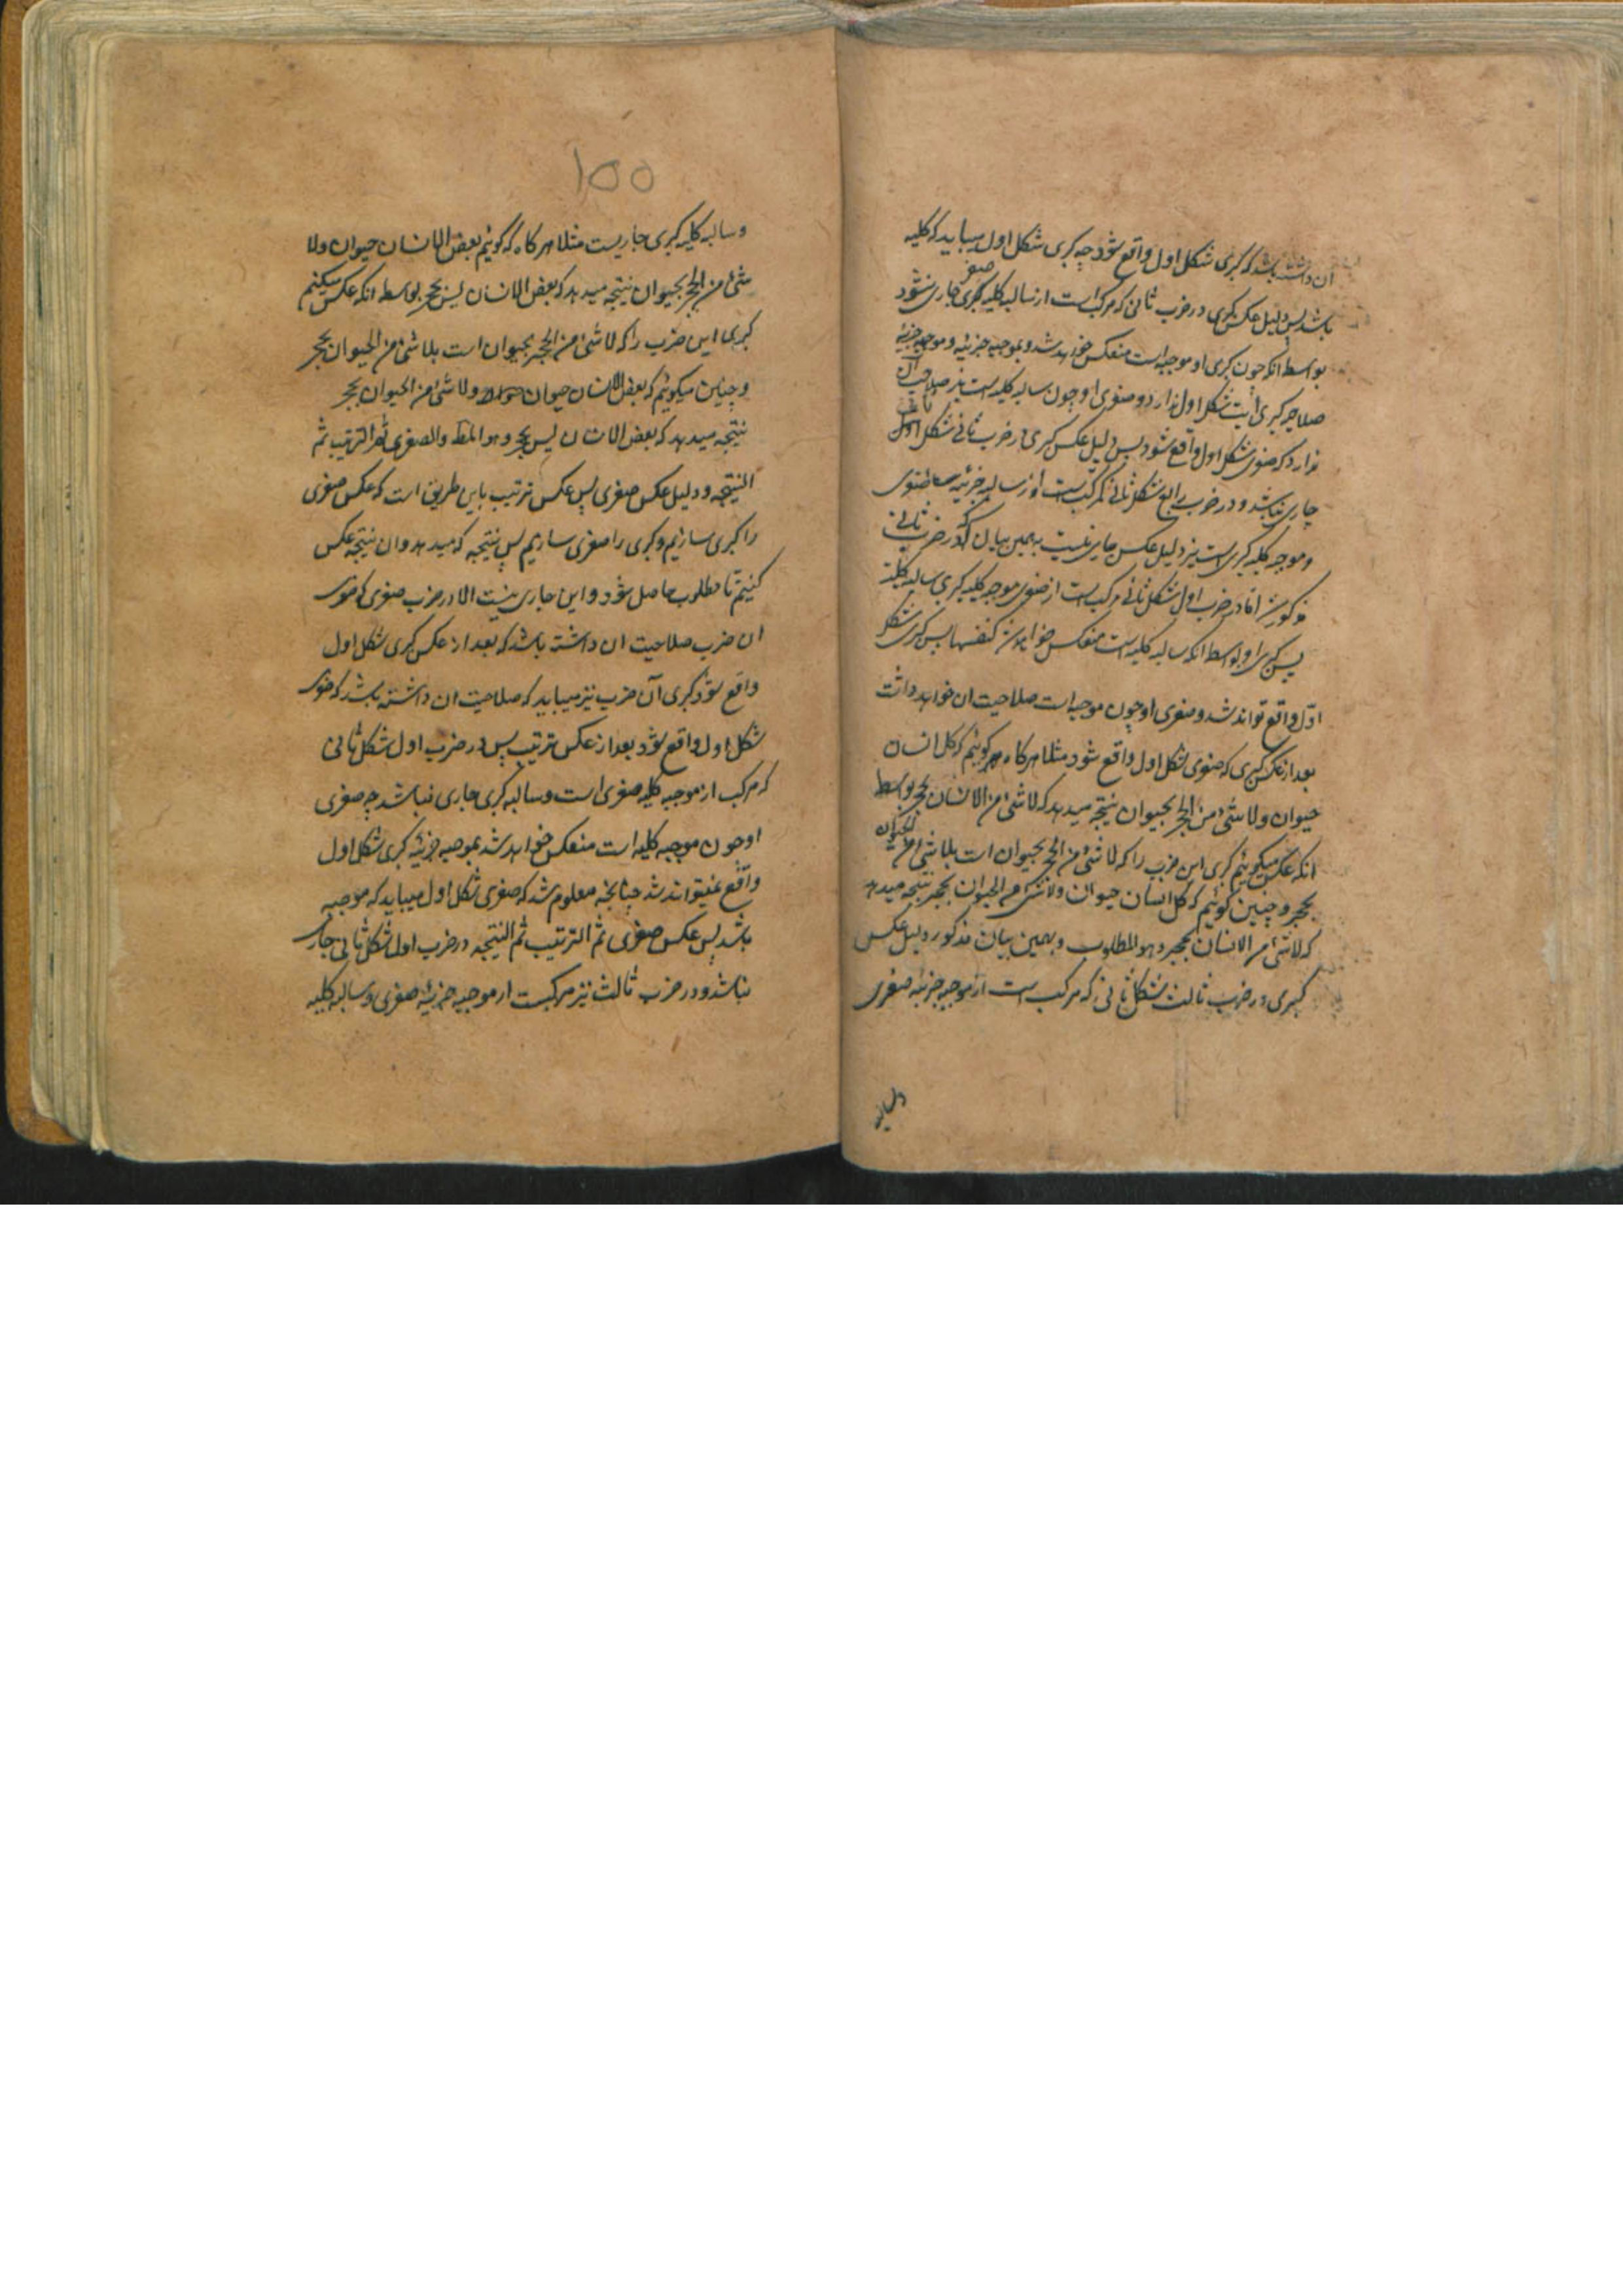 ان داشته باشد که کبری شکل اول واقع شود چه کبری شکل اول میباید که کلیه
باشد پس دلیل عکس کبری در ضرب ثانی که مرکب است از سالبه کلیه صغری جاری نشود
بواسطه انکه چون کبری او موجبه است منعکس خواهد شد و بموجبه جزئیه و موجبه جزئیه
صلاحیت کبری شکل اول ندارد و صغری او چون سالبه کلیه است نیز صلاحیت آن
ندارد که صغری شکل اول واقع شود پس دلیل عکس کبری در ضرب ثانی شکل ثانی
جاری نباشد و در ضرب رابع شکل ثانی که مرکب است از سالبه جزئیه صغری
و موجبه کلیه کبری است نیز دلیل عکس جاری نیست به همین بیان که در ضرب ثانی
مذکور شد اما در ضرب اول شکل ثانی مرکب است از صغری موجبه کلیه کبری سالبه کلیه
پس کبری او بواسطه انکه سالبه کلیه است منعکس خواهد شد کنفسها پس کبری شکل
اول واقع تواند شد و صغری او چون موجبه است صلاحیت ان خواهد داشت
بعد از عکس کبری که صغری شکل اول واقع شود مثلا هرگاه گوئیم که کل انسان
حیوان ولا شئ من الحجر بحیوان نتیجه میدهد که لا شئ من الانسان بحجر بواسطه
انکه عکس میکوئیم کبری این ضرب را که لا شئ من الحجر بحیوان است بلا شئ من الحیوان
بحجر و چنین گوئیم که کل انسان حیوان ولا شئ من الحیوان بحجر نتیجه میدهد
که لا شئ من الانسان بحجر و هو المطلوب و بهمین بیان مذکور دلیل عکس
کبری در ضرب ثالث شکل ثانی که مرکب است از موجبه جزئیه صغری
وسالبه
100
وسالبه کلیه کبری جاریست مثلا هرگاه که گوئیم بعض الانسان حیوان ولا
شئ من الحجر بحیوان نتیجه میدهد که بعض الانسان لیس بحجر بواسطه انکه عکس میکنیم
کبری این ضرب را که لا شئ من الحجر بحیوان است بلا شئ من الحیوان بحجر
و چنین میکوئیم که بعض الانسان حیوان ولا شئ من الحیوان بحجر
نتیجه میدهد که بعض الانسان لیس بحجر و هو المط والصغری ثم الترتیب ثم
النتیجه و دلیل عکس صغری پس عکس ترتیب باین طریق است که عکس صغری
را کبری سازیم و کبری را صغری سازیم پس نتیجه که میدهد وان نتیجه عکس
کنیم تا مطلوب حاصل شود و این جاری نیست الا در ضرب صغری
ان ضرب صلاحیت ان داشته باشد که بعد از عکس کبری شکل اول
واقع شود کبری آن ضرب نیز میباید که صلاحیت ان داشته باشد که صغری
شکل اول واقع شود بعد از عکس ترتیب پس در ضرب اول شکل ثانی
که مرکب از موجبه کلیه صغری است و سالبه کبری جاری نباشد چه صغری
او چون موجبه کلیه است منعکس خواهد شد بموجبه جزئیه کبری شکل اول
واقع نمیتواند شد چنانچه معلوم شد که صغری شکل اول میباید که موجبه
باشد پس عکس صغری ثم الترتیب ثم النتیجه در ضرب اول شکل ثانی جاری
نباشد و در ضرب ثالث نیز مرکبست از موجبه جزئیه صغری و سالبه کلیه